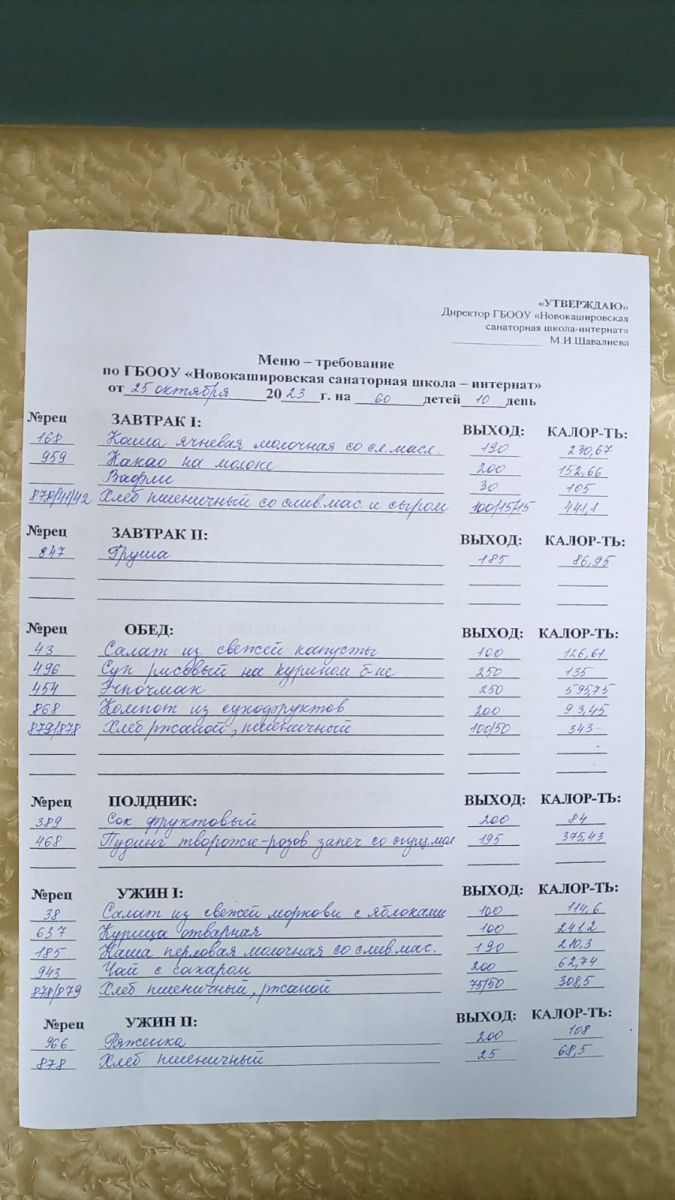 «УТВЕРЖДАЮ»
Директор ГБООУ «Новокашировская
санаторная школа-интернат»
М.И Шавалиева
Меню – требование
по ГБООУ «Новокашировская санаторная школа – интернат»
от 25 октября 2023 г. на 60 детей 10 день
№рец ЗАВТРАК I: ВЫХОД: КАЛОР-ТЬ:
168 Каша ячневая молочная со сл.масл. 190 290,67
959 Какао на молоке 200 152,66
Вафли 30 105
879/41/42 Хлеб пшеничный со слив.мас. и сыром 100/15/15 441,1
№рец ЗАВТРАК II: ВЫХОД: КАЛОР-ТЬ:
847 Груша 185 86,95
№рец ОБЕД: ВЫХОД: КАЛОР-ТЬ:
43 Салат из свежей капусты 100 126,61
496 Суп рисовый на курином б-не 250 135
454 Эчпочмак 250 595,75
868 Компот из сухофруктов 200 93,45
879/878 Хлеб ржаной, пшеничный 100/50 343
№рец ПОЛДНИК: ВЫХОД: КАЛОР-ТЬ:
389 Сок фруктовый 200 84
468 Пудинг творожн-розов запеч со сгущ.мол 195 375,43
№рец УЖИН I: ВЫХОД: КАЛОР-ТЬ:
38 Салат из свежей моркови с яблоками 100 114,6
637 Курица отварная 100 241,2
185 Каша перловая молочная со слив.мас. 190 210,3
943 Чай с сахаром 200 62,74
878/879 Хлеб пшеничный, ржаной 75/50 308,5
№рец УЖИН II: ВЫХОД: КАЛОР-ТЬ:
966 Ряженка 200 108
878 Хлеб пшеничный 25 68,5